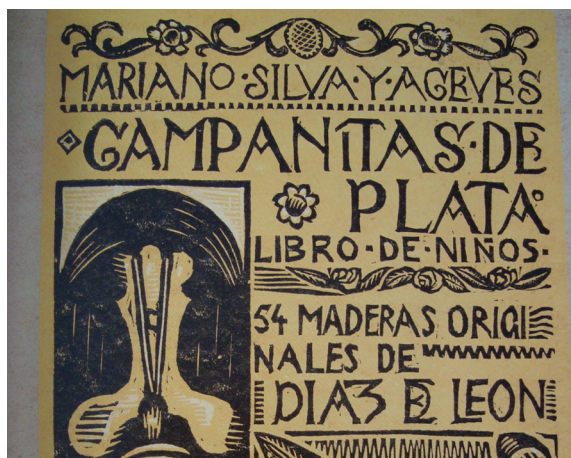 MARIANO·SILVA·Y·ACEVES
CAMPANITAS·DE
PLATA
LIBRO·DE·NIÑOS·
54 MADERAS ORIGI
NALES DE
DIAZ DE LEON